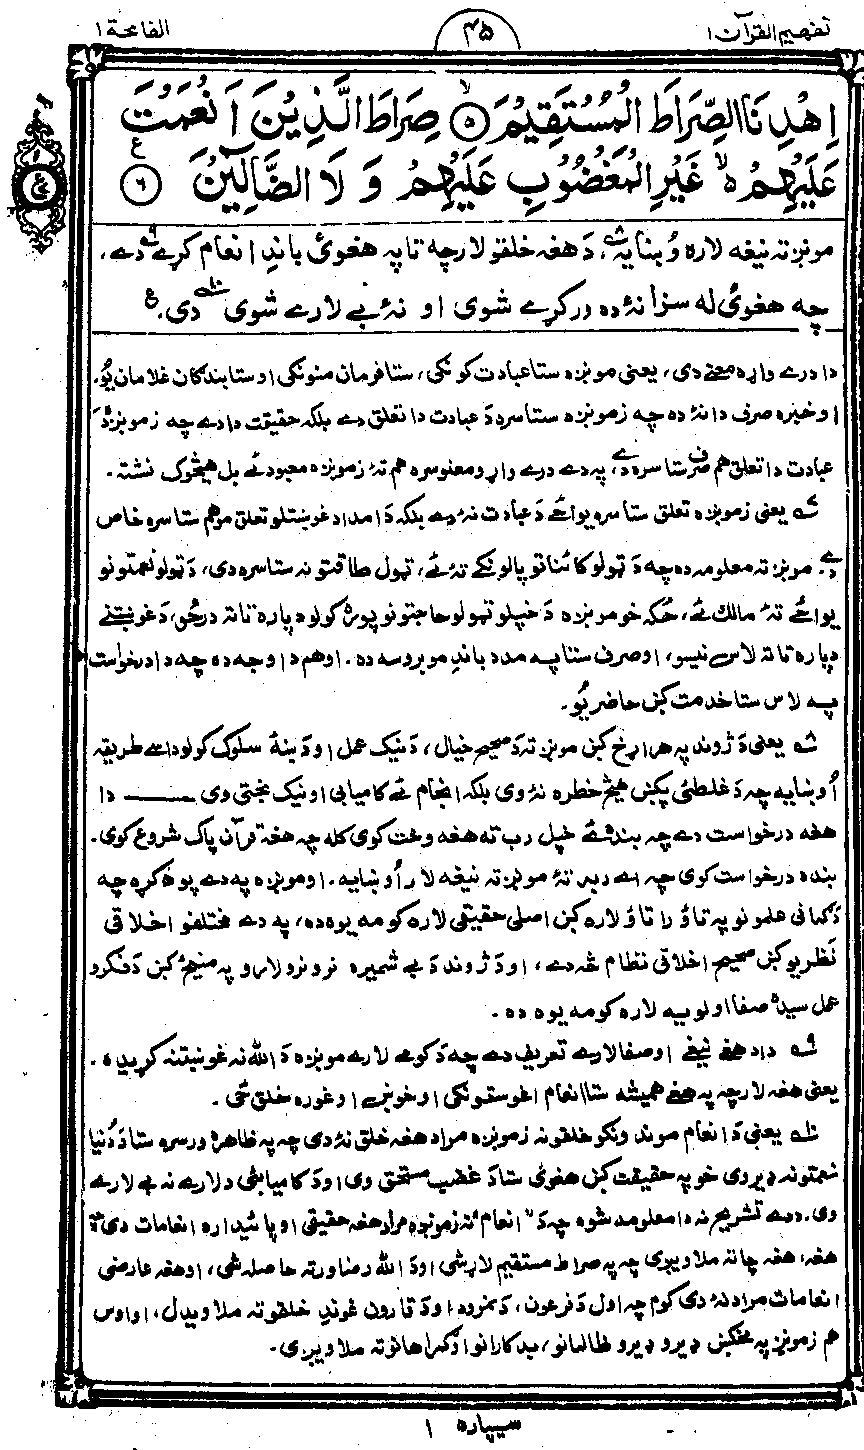 تفهيم القرآن ۱
۴۵
الفاتحة ۱
اِهْدِنَا الصِّرَاطَ الْمُسْتَقِيْمَ ۙ۝۵ صِرَاطَ الَّذِيْنَ اَنْعَمْتَ
عَلَيْهِمْ ۙ۬ غَيْرِ الْمَغْضُوْبِ عَلَيْهِمْ وَلَا الضَّآلِّيْنَ ۝۶ ع
مونږ ته نيغه لاره وُ ښايه ۸، دَ هغه خلقو لار چه تا په هغوئ باندِ انعام کړے ۹ دے،
چه هغوئ له سزا نۀ ده ورکړے شوی او نۀ بے لارے شوی ۱۰ دی. ع
دا درے واړه معنے دی، يعنی مونږه ستا عبادت کونکی، ستا فرمان منونکی او ستا بندګان غلامان يُو.
او خبره صرف دا نۀ ده چه زمونږه ستا سره دَ عبادت دا تعلق دے بلکه حقيقت دا دے چه زمونږه دَ
عبادت دا تعلق هم صرف ستا سره دے، په دے درے واړو معنو سره هم تۀ زمونږه معبود ئے بل هيڅوک نشته.
۷ يعنی زمونږه تعلق ستا سره يواځے دَ عبادت نۀ دے بلکه دَ امداد غوښتلو تعلق مو هم ستا سره خاص
دے. مونږ ته معلومه ده چه دَ ټولو کائناتو پالونکے تۀ ئے، ټول طاقتونه ستا سره دی، دَ ټولو نعمتونو
يواځے تۀ مالک ئے، ځکه خو مونږه دَ خپلو ټولو حاجتونو پوره کولو دپاره تا ته درځُو، دَ غوښتنے
دپاره تا ته لاس نيسو، او صرف ستا په مدد باندِ مو بروسه ده. او هم دا وجه ده چه دا درخواست
په لاس ستا خدمت کښ حاضر يُو.
۸ يعنی دَ ژوند په هر اړخ کښ مونږ ته دَ صحيح خيال، دَ نيک عمل او دَ ښۀ سلوک کولو داسے طريقه
اُوښايه چه دَ غلطئ پکښ هيڅ خطره نۀ وی بلکه انجام ئے کاميابی او نيک بختی وی ــــــ دا
هغه درخواست دے چه بنده ئے خپل رب ته هغه وخت کوی کله چه هغه قرآن پاک شروع کوی.
بنده درخواست کوی چه اے ربه! تۀ مونږ ته نيغه لار اُوښايه. او مونږه په دے پوهه کړه چه
دَ ګمانی علمونو په تاؤ راتاؤ لاره کښ اصلی حقيقی لاره کومه يوه ده، په دے مختلفو اخلاقی
نظريو کښ صحيح اخلاقی نظام څه دے، او دَ ژوند دَ بے شميره نرو نرو لارو په مينځ کښ دَ فکر و
عمل سيده صفا او لويه لاره کومه يوه ده.
۹ دا دَ هغے نيغے او صفا لارے تعريف دے چه دَ کومے لارے مونږه دَ الله نه غوښتنه کړيده.
يعنی هغه لار چه په هغے هميشه ستا انعام اخوستونکی او خوښے او غوره خلق تلی.
۱۰ يعنی دَ انعام موندونکو خلقو نه زمونږه مراد هغه خلق نۀ دی چه په ظاهره ورسره ستا دَ دُنيا
نعمتونه ډير وی خو په حقيقت کښ هغوئ ستا دَ غضب مستحق وی او دَ کاميابئ دَ لارے نه بے لارے
وی. دے تشريح نه دا معلومه شوه چه دَ "انعام" نه زمونږه مراد هغه حقيقی او پائيداره انعامات دی
هغه، هغه چا ته ملاويږی چه په صراط مستقيم لاړ شی او دَ الله رضا ورته حاصله شی، او هغه عارضی
انعامات مراد نۀ دی کوم چه اول دَ فرعون، دَ نمرود او دَ قارون غوندِ خلقو ته ملاويدل، او اوس
هم زمونږ په مخکښ ډيرو ډيرو ظالمانو، بدکارانو او ګمراهانو ته ملاويږی.
سيپاره ۱